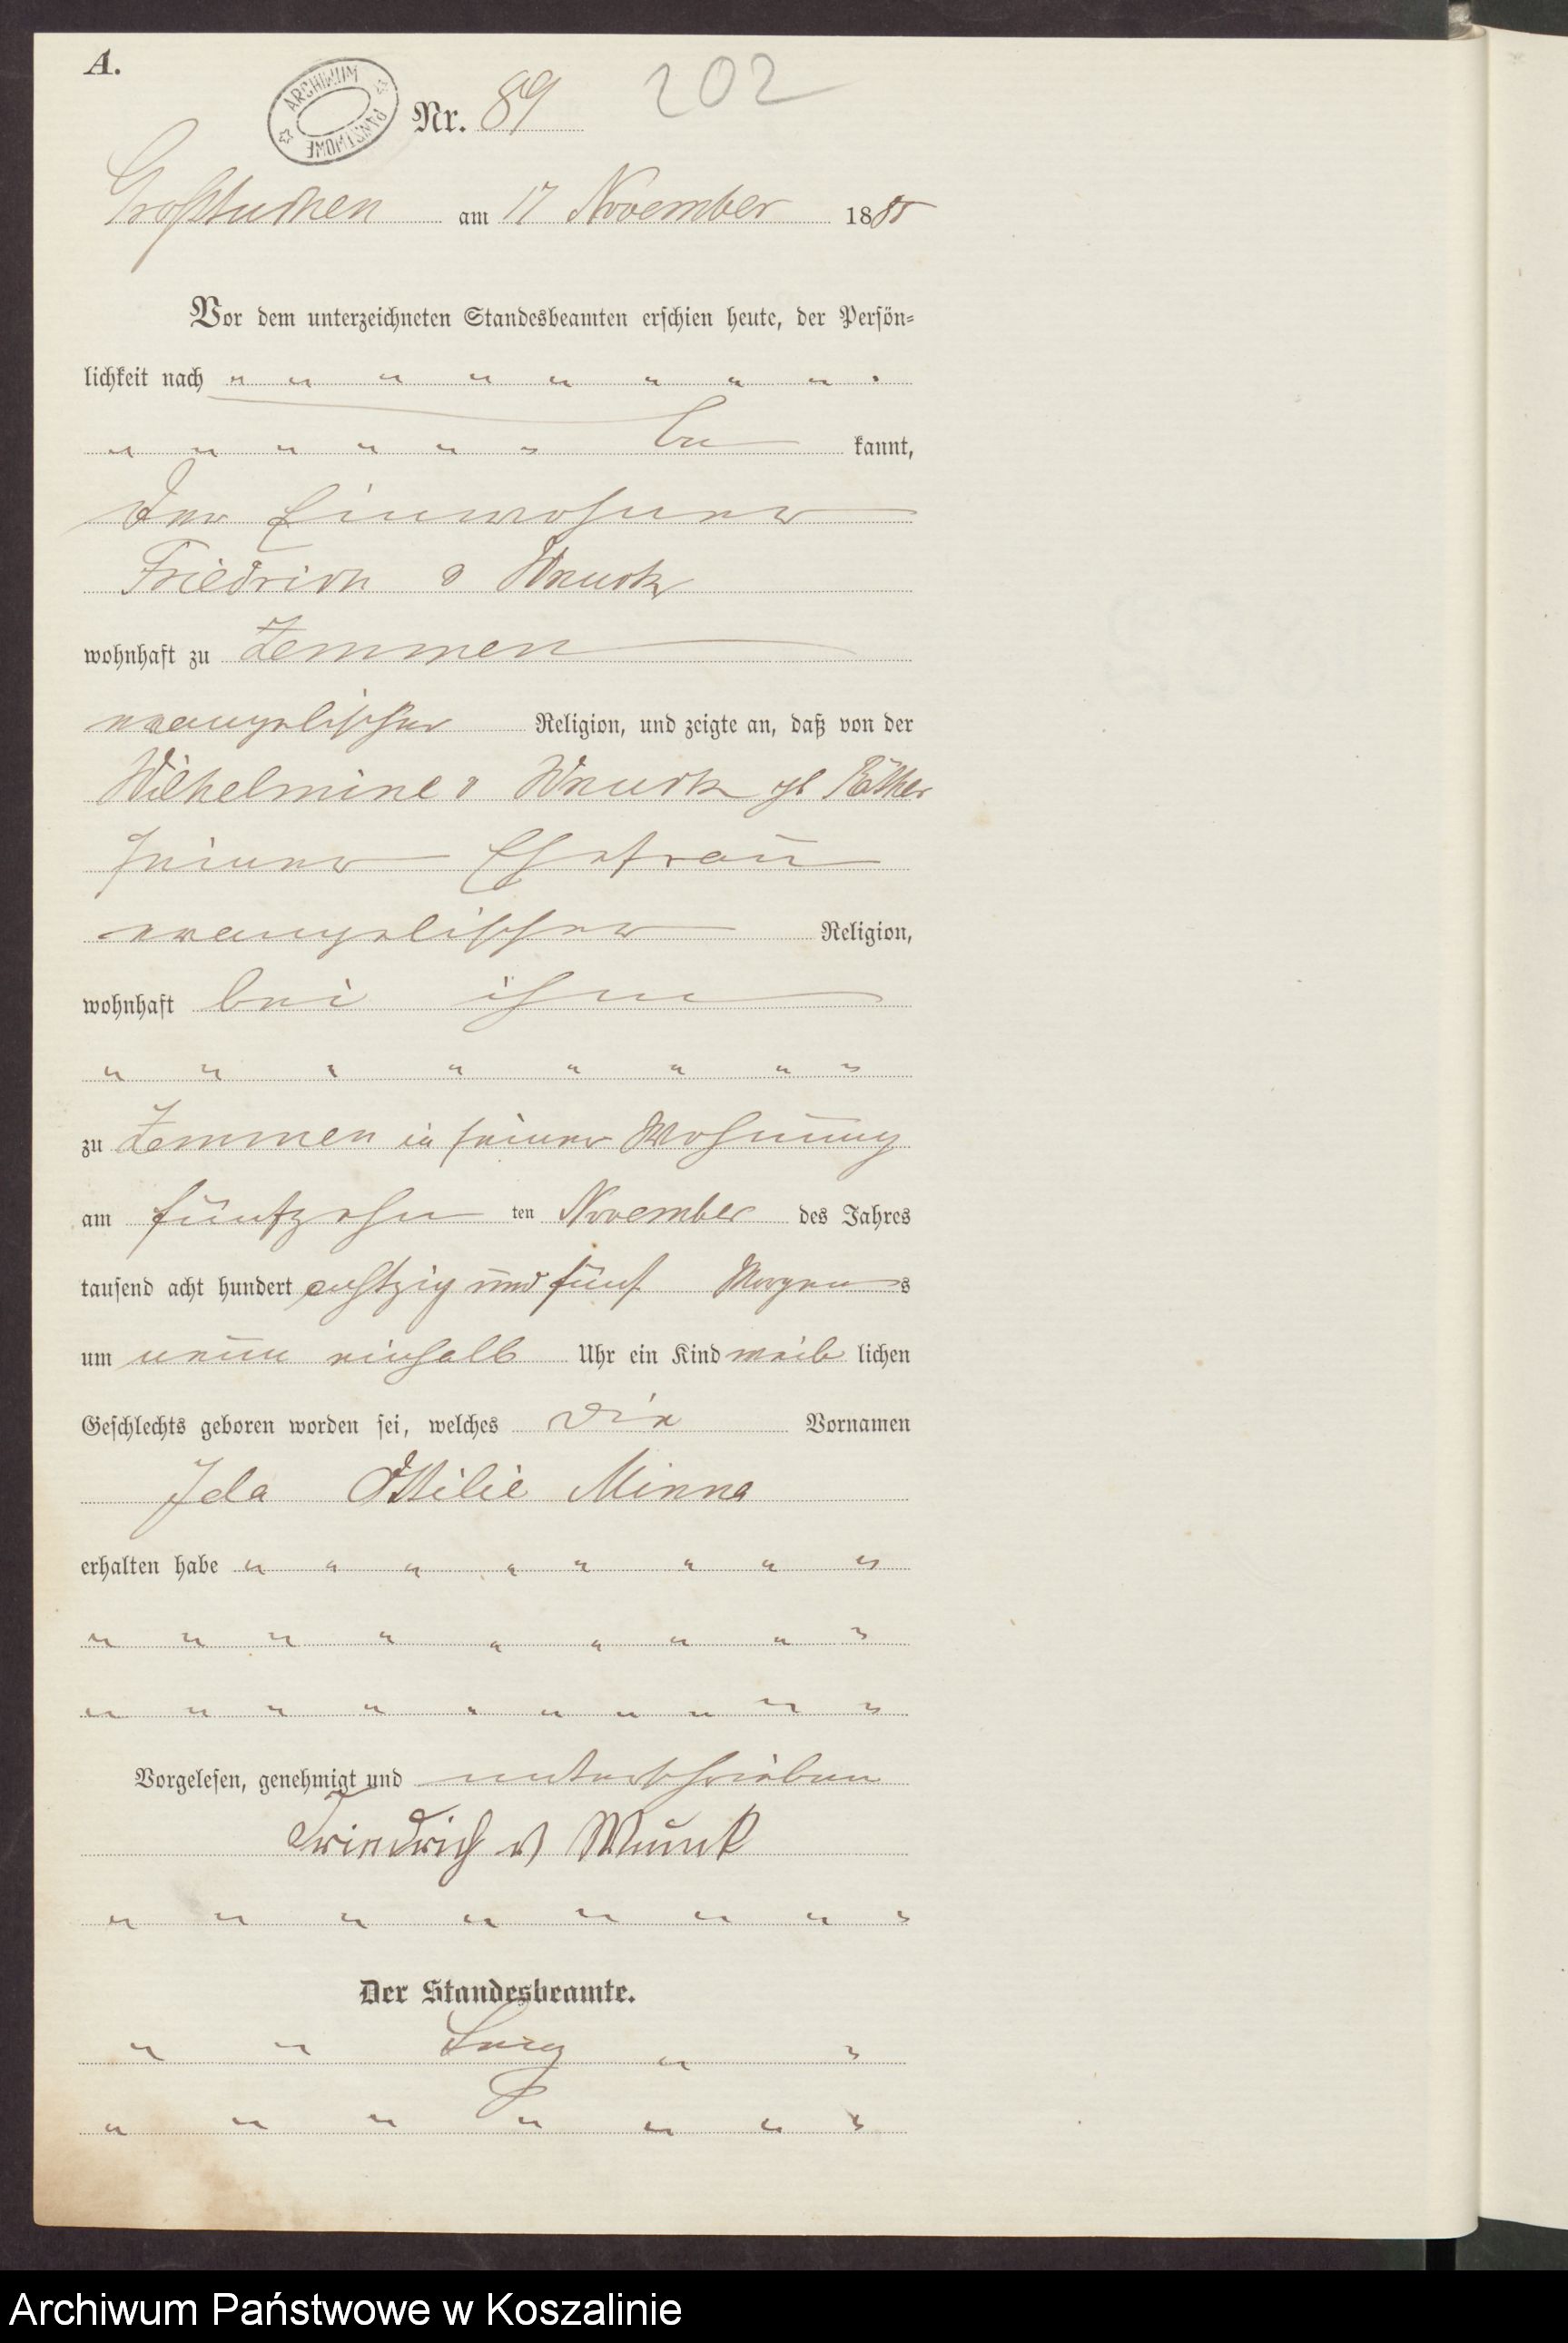 A.
ARCHIWUM PAŃSTWOWE
Nr. 89 202
Großtuchen am 17 November 1885
Vor dem unterzeichneten Standesbeamten erschien heute, der Persön-
lichkeit nach
be kannt,
der Einwohner
Friedrich v Wnuck
wohnhaft zu Zemmen
evangelischer Religion, und zeigte an, daß von der
Wilhelmine v Wnuck gb
seiner Ehefrau
evangelischer Religion,
wohnhaft bei ihm
zu Zemmen in seiner Wohnung
am fünfzehn ten November des Jahres
tausend acht hundert achtzig und fünf Morgens
um neun einhalb Uhr ein Kind weib lichen
Geschlechts geboren worden sei, welches die Vornamen
Ida Ottilie Minna
erhalten habe
Vorgelesen, genehmigt und unterschrieben
Friedrich v Wnuck
Der Standesbeamte.
Archiwum Państwowe w Koszalinie